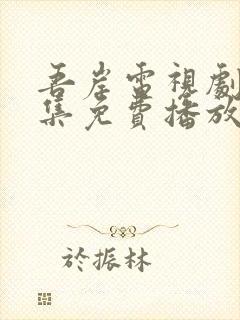 吾岸電視劇
集免費播放
於振林